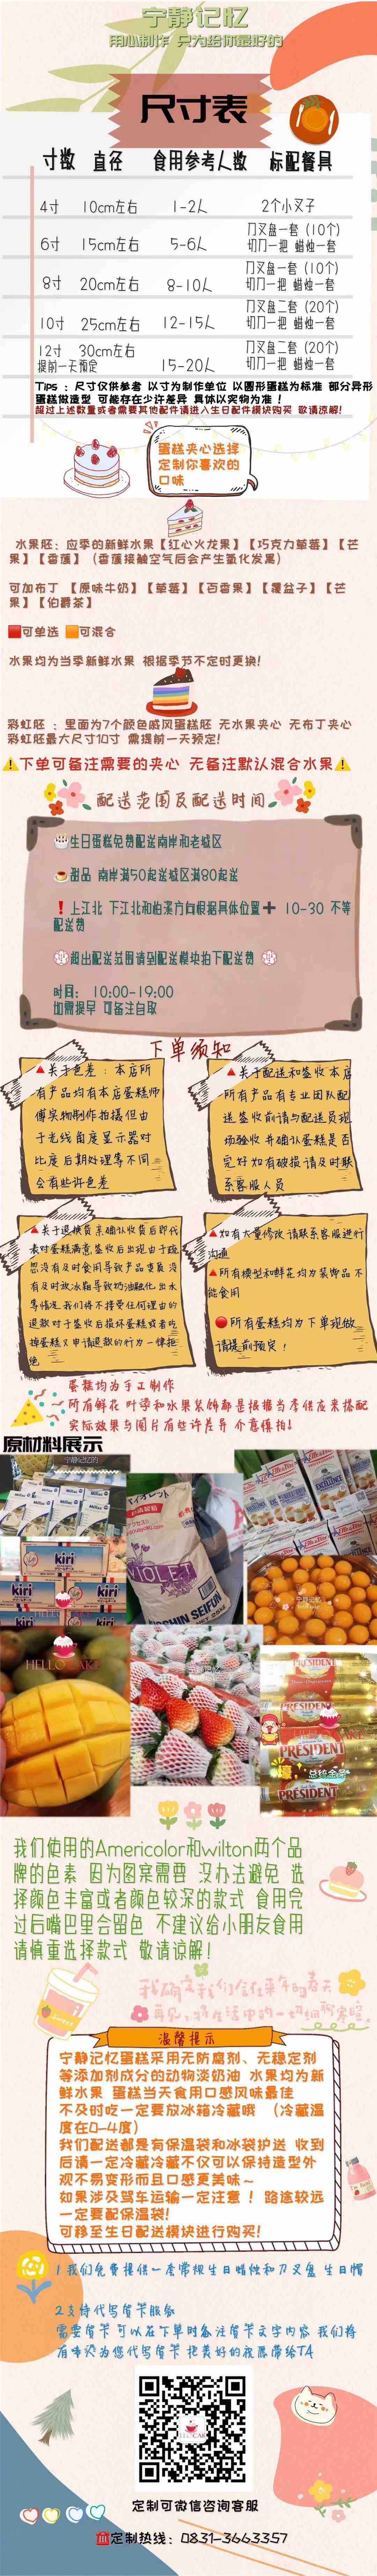 宁静记忆
用心制作 只为给你最好的
尺寸表
寸数 直径 食用参考人数 标配餐具
4寸 10cm左右 1-2人 2个小叉子
6寸 15cm左右 5-6人 刀叉盘一套（10个）
切刀一把 蜡烛一套
8寸 20cm左右 8-10人 刀叉盘一套（10个）
切刀一把 蜡烛一套
10寸 25cm左右 12-15人 刀叉盘二套（20个）
切刀一把 蜡烛一套
12寸 30cm左右
提前一天预定 15-20人 刀叉盘二套（20个）
切刀一把 蜡烛一套
Tips ：尺寸仅供参考 以寸为制作单位 以圆形蛋糕为标准 部分异形
蛋糕做造型 可能存在少许差异 具体以实物为准！
超过上述数量或者需要其他配件请进入生日配件模块购买 敬请谅解！
蛋糕夹心选择
定制你喜欢的
口味
水果胚：应季的新鲜水果【红心火龙果】【巧克力草莓】【芒
果】【香蕉】（香蕉接触空气后会产生氧化发黑）
可加布丁 【原味牛奶】【草莓】【百香果】【覆盆子】【芒
果】【伯爵茶】
可单选 可混合
水果均为当季新鲜水果 根据季节不定时更换！
彩虹胚 ：里面为7个颜色戚风蛋糕胚 无水果夹心 无布丁夹心
彩虹胚最大尺寸10寸 需提前一天预定！
下单可备注需要的夹心 无备注默认混合水果
配送范围及配送时间
生日蛋糕免费配送南岸和老城区
甜品 南岸满50起送城区满80起送
上江北 下江北和柏溪方向根据具体位置➕ 10-30 不等
配送费
超出配送范围请到配送模块拍下配送费
时间： 10:00-19:00
如需提早 可备注自取
下单须知
关于色差：本店所
有产品均有本店蛋糕师
傅实物制作拍摄但由
于光线角度显示器对
比度后期处理等不同
会有些许色差
关于配送和签收本店
所有产品有专业团队配
送签收前请与配送员现
场验收 并确认蛋糕是否
完好 如有破损请及时联
系客服人员
关于退换货 亲确认收货后即代
表对蛋糕满意 签收后出现由于疏
忽没有及时食用导致产品变质 没
有及时放冰箱导致奶油融化 出水
等情况 我们将不接受任何理由的
退款 对于签收后损坏蛋糕或者吃
掉蛋糕又申请退款的行为一律拒
绝
如有大量修改 请联系客服进行
沟通
所有模型和鲜花均为装饰品 不
能食用
所有蛋糕均为下单现做
请提前预定！
蛋糕均为手工制作
所有鲜花 叶子和水果装饰都是根据当季供应来搭配
实际效果与图片有些许差异 介意慎拍！
原材料展示
宁静记忆的
kiri
kiri
VIOLET
NISSHIN SEIFUN
HELLO CAKE
PRESIDENT
PRESIDENT
PRESIDENT
壕 总统金条
PRESIDENT
我们使用的Americolor和wilton两个品
牌的色素 因为图案需要 没办法避免 选
择颜色丰富或者颜色较深的款式 食用完
过后嘴巴里会留色 不建议给小朋友食用
请慎重选择款式 敬请谅解！
温馨提示
宁静记忆蛋糕采用无防腐剂、无稳定剂
等添加剂成分的动物淡奶油 水果均为新
鲜水果 蛋糕当天食用口感风味最佳
不及时吃一定要放冰箱冷藏哦 （冷藏温
度在0-4度）
我们配送都是有保温袋和冰袋护送 收到
后请一定冷藏冷藏不仅可以保持造型外
观不易变形而且口感更美味~
如果涉及驾车运输一定注意 ！路途较远
一定要配保温袋！
可移至生日配送模块进行购买！
1 我们免费提供一套常规生日蜡烛和刀叉盘 生日帽
2支持代写贺卡服务
需要贺卡 可以在下单时备注贺卡文字内容 我们将
有专人为您代写贺卡 把美好的祝愿带给TA
定制可微信咨询客服
定制热线：0831-3663357